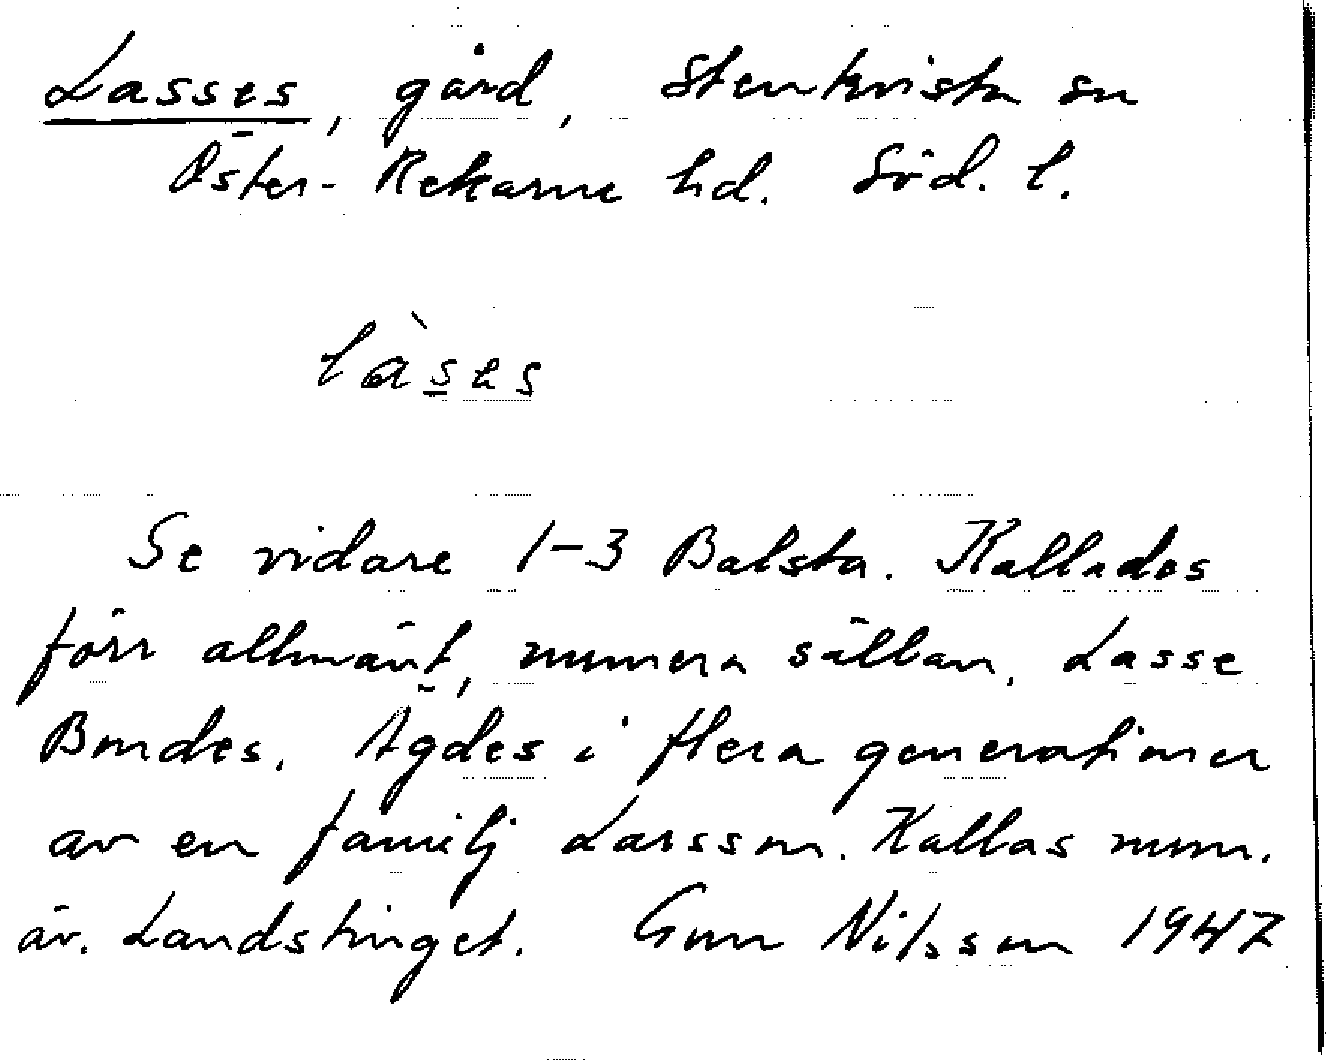 Lasses, gård, Stenkvista sn
Öster-Rekarne hd. Söd. l.
làses
Se vidare 1-3 Balsta. Kallades
förr allmänt, numera sällan, Lasse
Bondes. Ägdes i flera generationer
av en familj Larsson. Kallas num.
äv. Landstinget. Gun Nilsson 1947